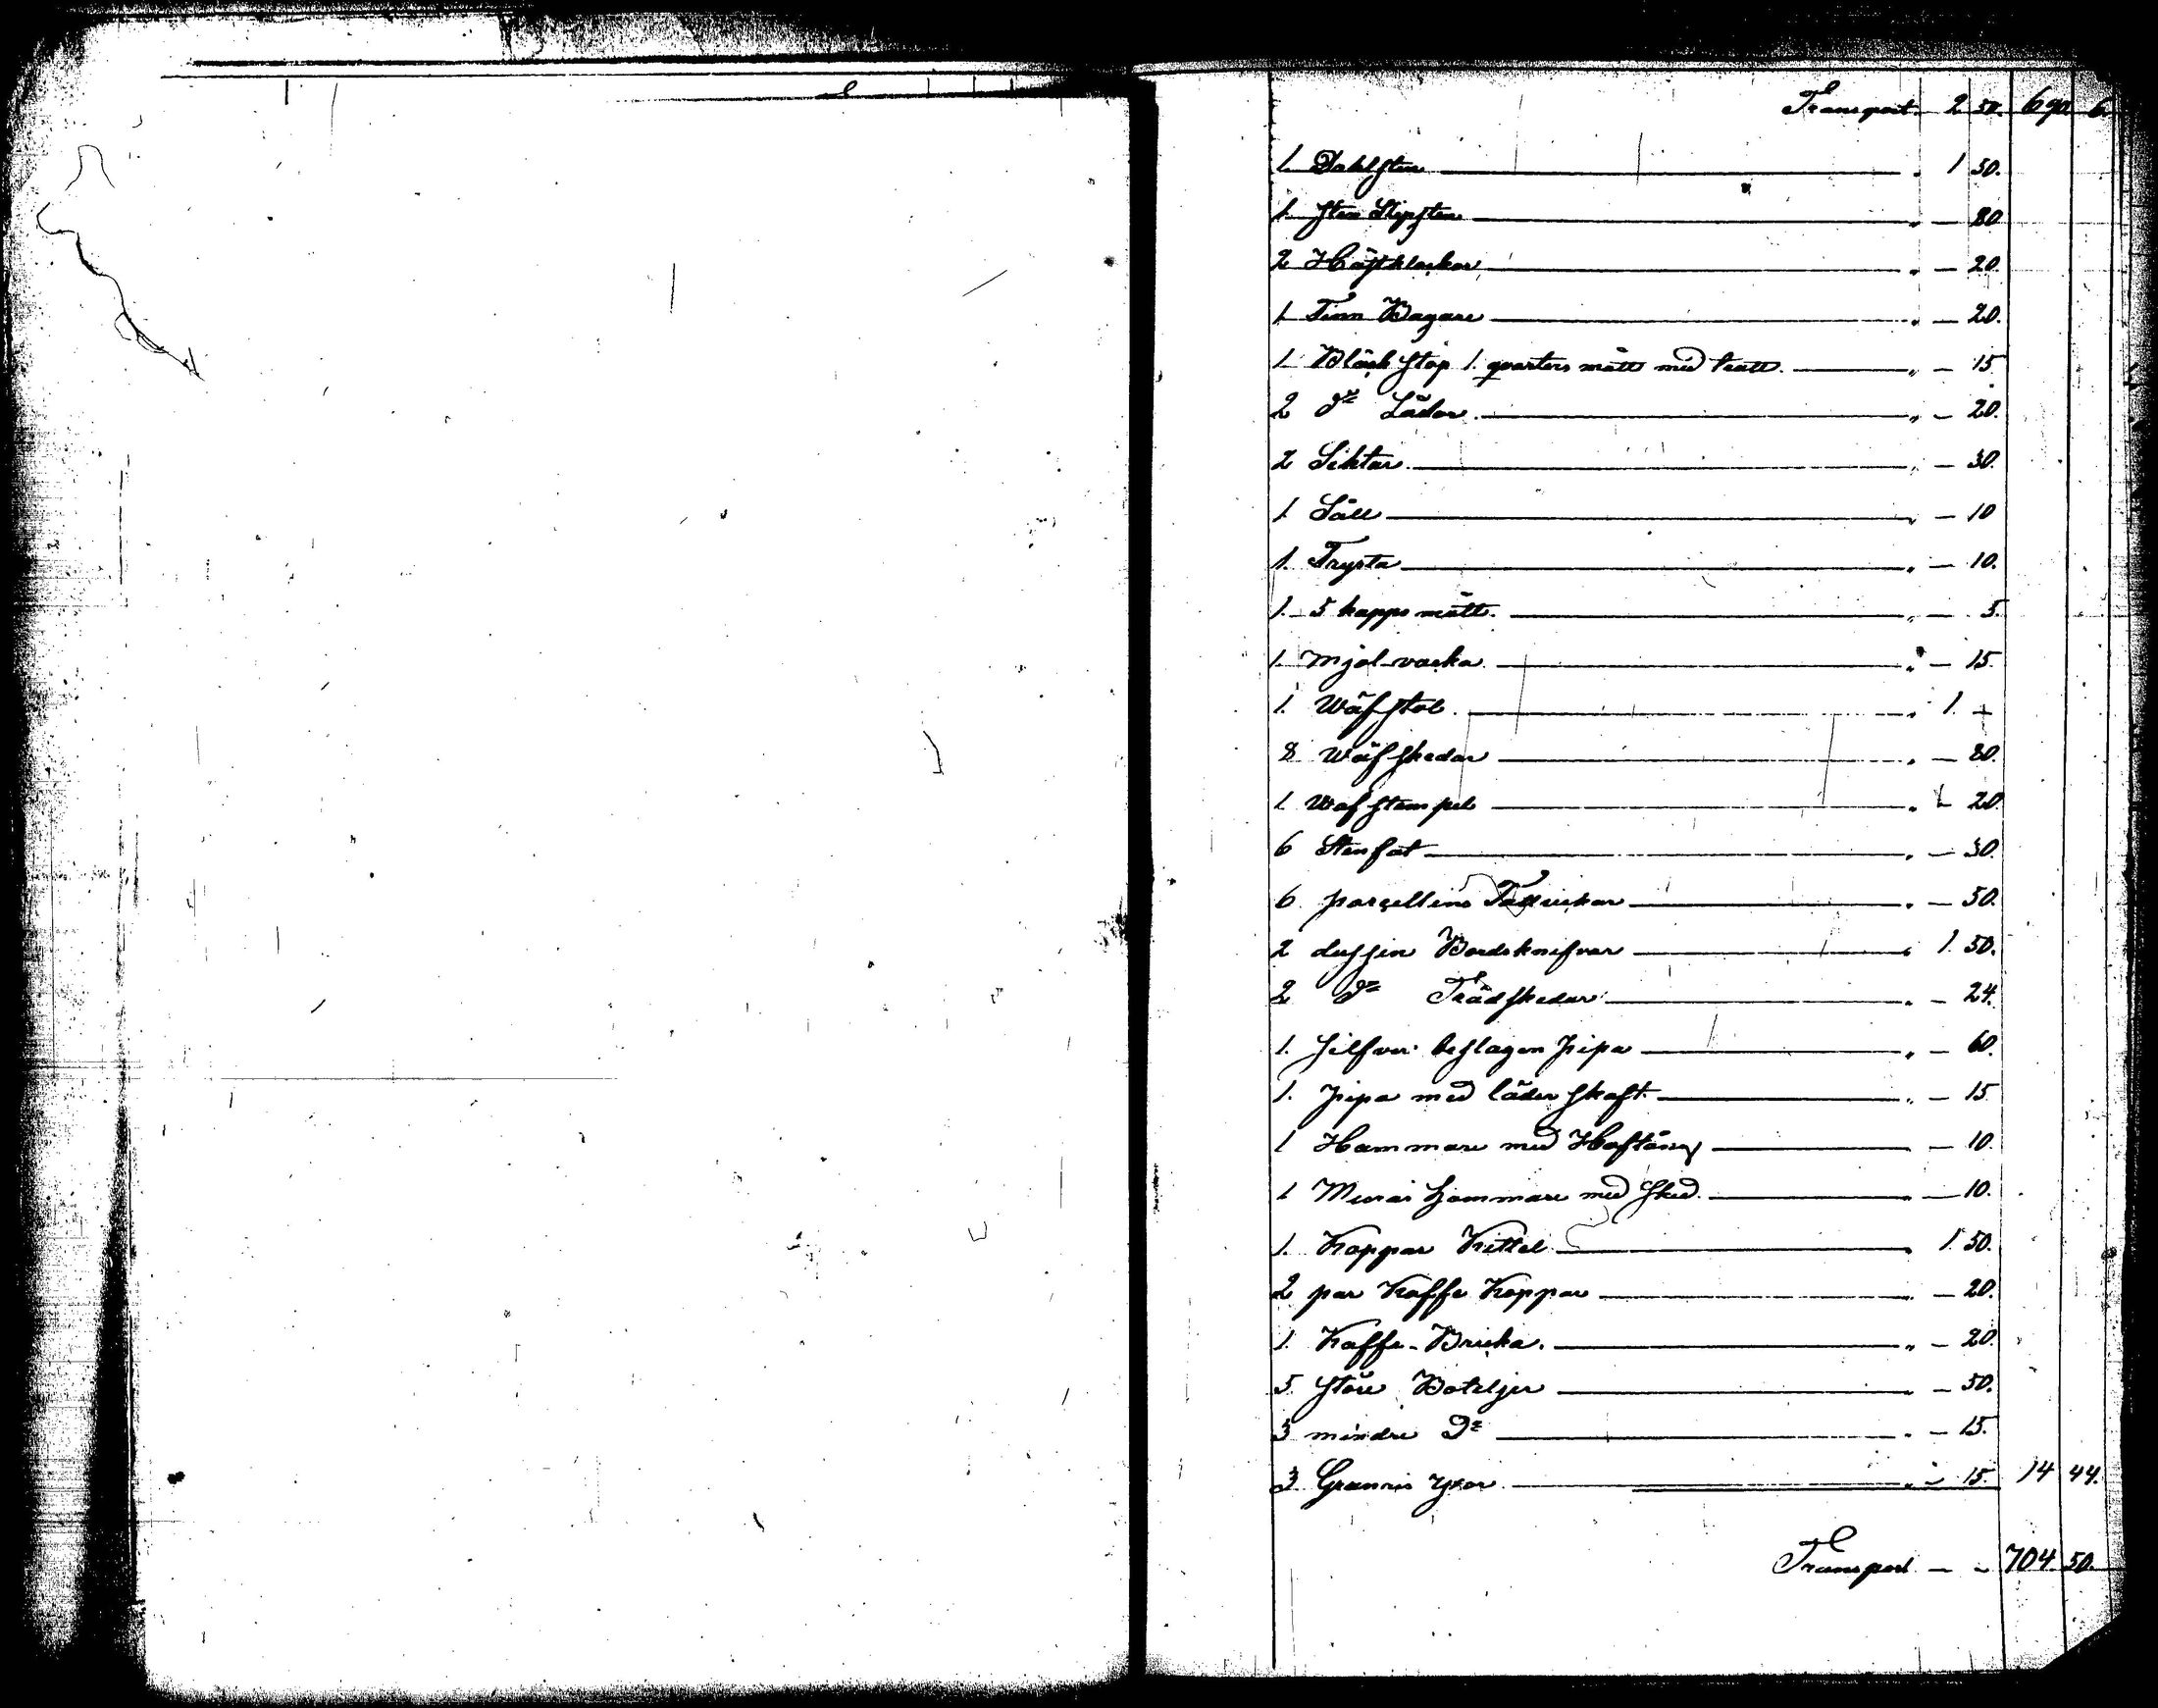 Transport " 2 50. 690. 6.
1. Dahlsten " 1 50.
1. sten Slipsten " — 80
2 Hästklockor " — 20
1. Tenn Bägare " — 20.
1. Bläck stop 1. qvarters mått med tratt. " — 15
2 Do Lådor " — 20.
2 Siktar " — 30.
1. Såll " — 10
1. Trysta " — 10.
1. 5 kapps mått. " — 5.
1. Mjöl-vacka " — 15
1. Wäfstol " 1. —
8 Wäfskedar " — 80.
1. Wäfstampel " — 20
6 Stenfat " — 30.
6 porcellins " — 50.
2 dussin Bordsknifvar " 1. 50.
2 Do Trädskedar " — 24.
1. silfver beslagen pipa " — 60.
1. pipa med läder skaft " — 15
1 Hammare med Hoftång — 10.
1 Murar hammare med sked " — 10.
1. Koppar Kittel " 1 50.
2 par Kaffe Koppar " — 20.
1. Kaffe-Bricka. " — 20.
5. störe Boteljer " — 50.
3 mindre Do " — 15.
3 yxor " — 15 14 44.
Transport — — 704. 50.